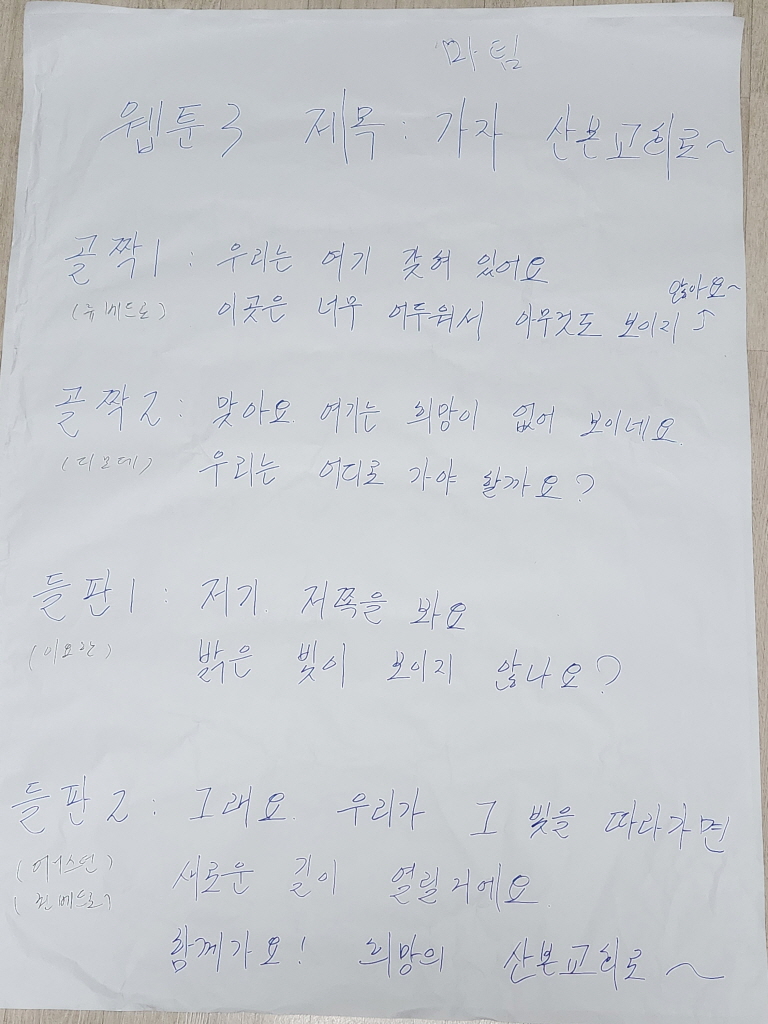 마 팀
웹툰3 제목 : 가자 산본교회로~
골짝1 : 우리는 여기 갖혀 있어요
(류베드로) 이곳은 너무 어두워서 아무것도 보이지 않아요~
골짝2 : 맞아요. 여기는 희망이 없어 보이네요.
(디모데) 우리는 어디로 가야 할까요?
들판1 : 저기. 저쪽을 봐요
(이요한) 밝은 빛이 보이지 않나요?
들판2 : 그래요. 우리가 그 빛을 따라가면
(어스틴) 새로운 길이 열릴거에요.
함께가요! 희망의 산본교회로~